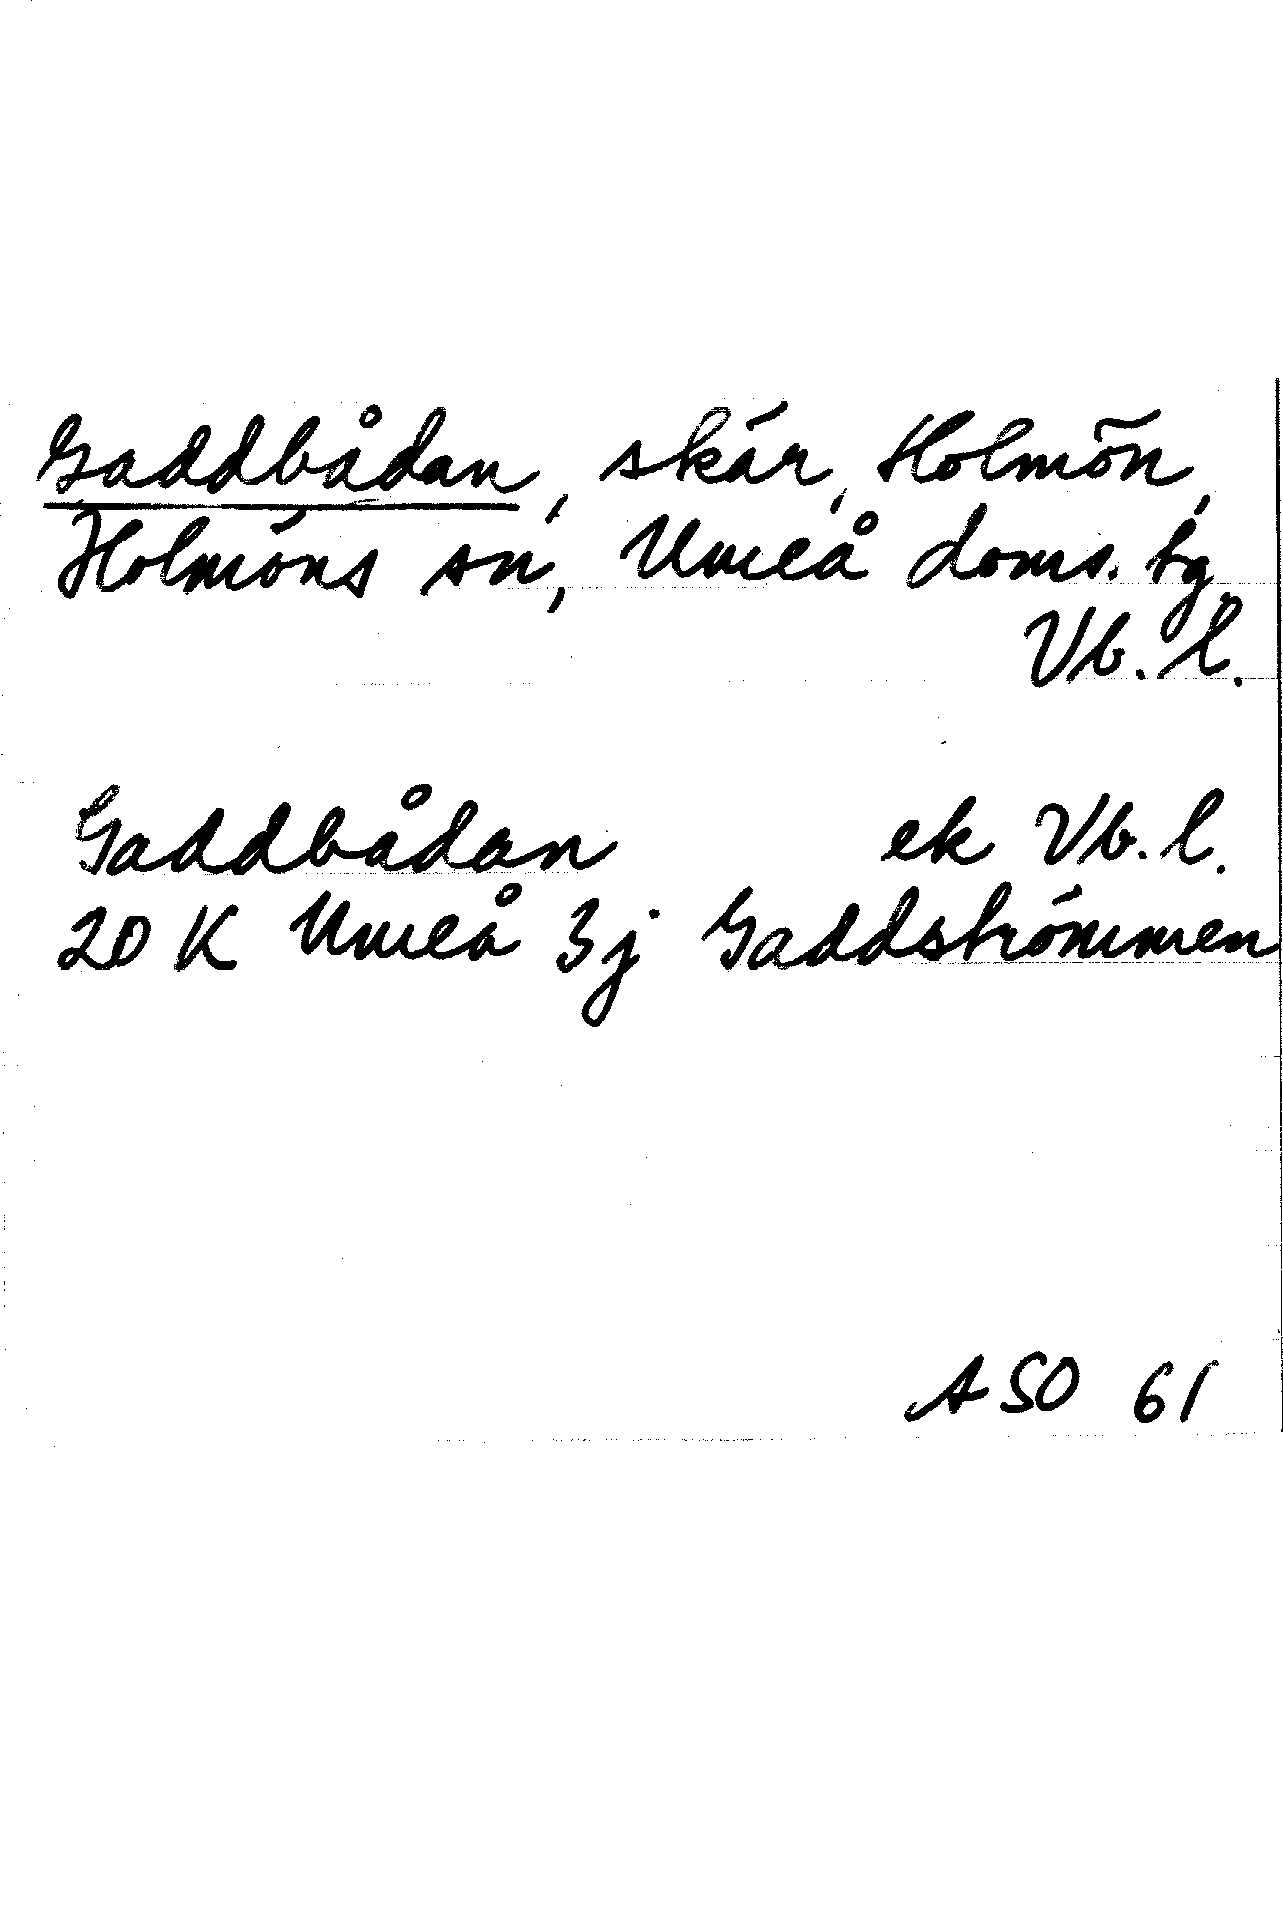 Gaddbådan, skär, Holmön,
Holmöns sn, Umeå doms. tg.
Vb. l.
Gaddbådan ek Vb. l.
20 K Umeå 3j Gaddströmmen
ASO 61